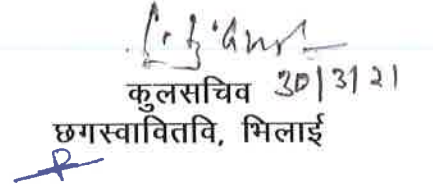 कुलसचिव 30/3/21
छगस्वावितवि, भिलाई